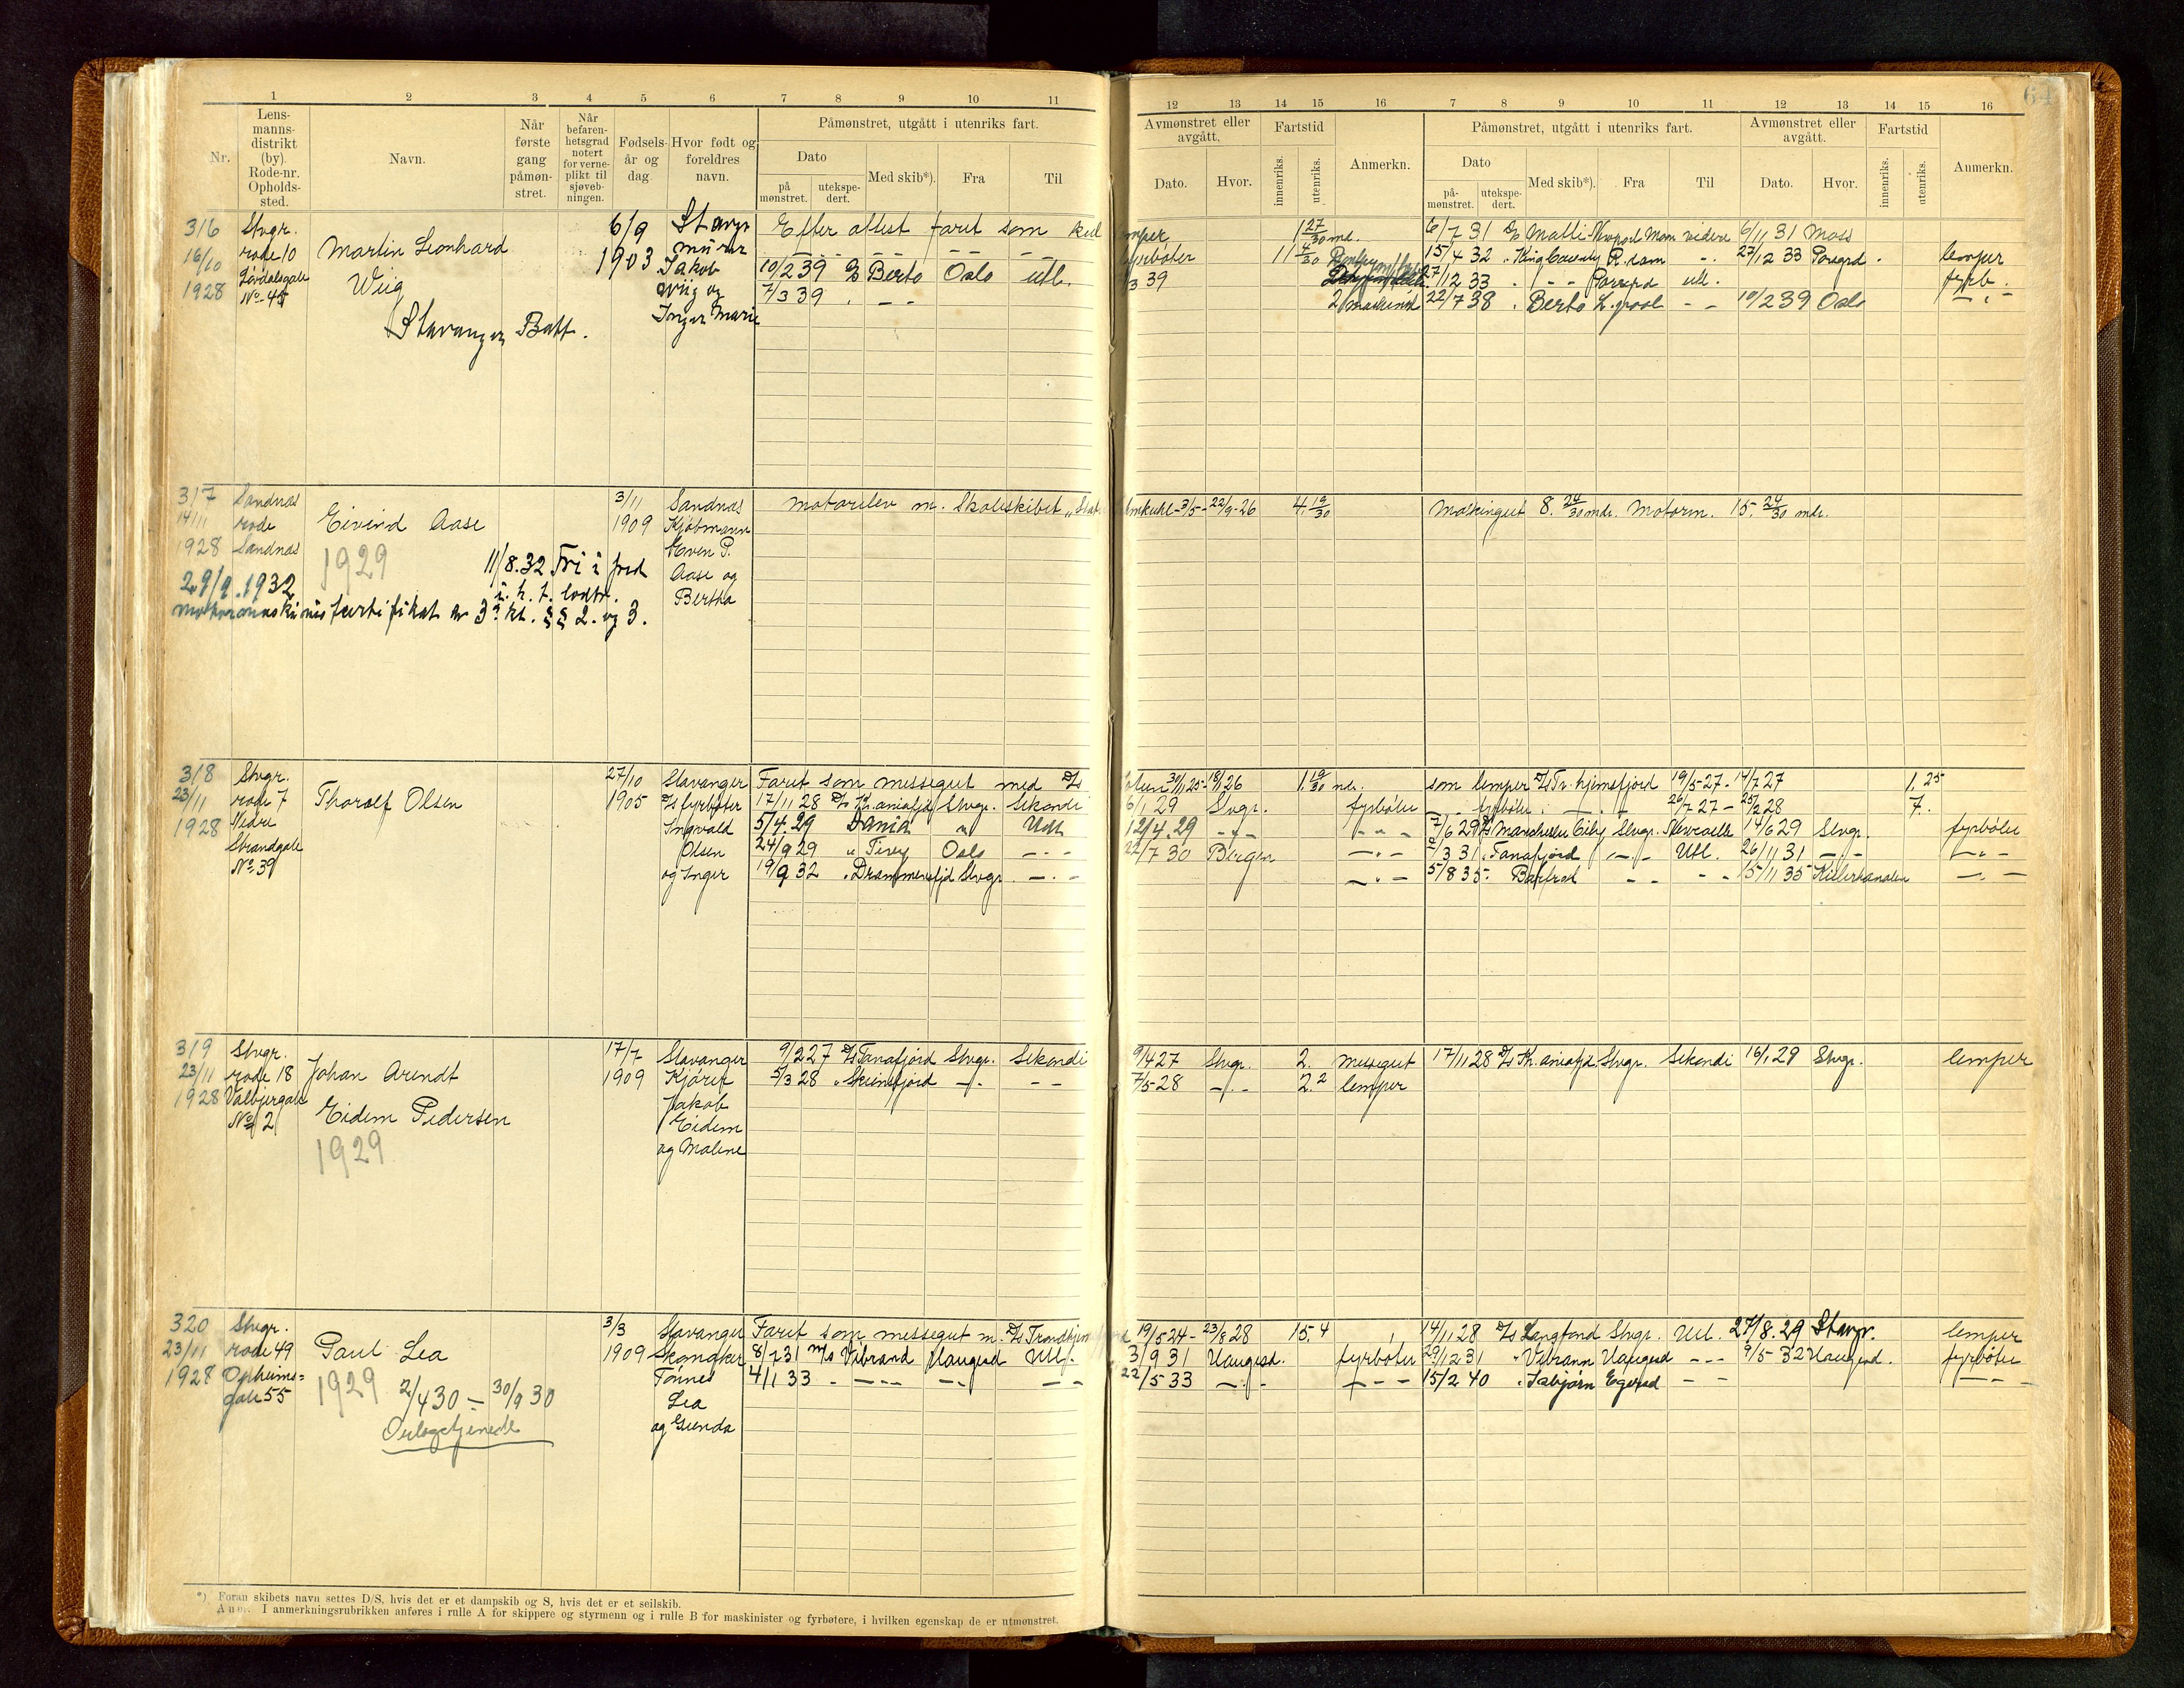 64
1 2 3 4 5 6 7 8 9 10 11
12 13 14 15 16 7 8 9 10 11 12 13 14 15 16
Nr.
Lens-
manns-
distrikt
(by).
Rode-nr.
Opholds-
sted.
Navn.
Når
første
gang
påmøn-
stret.
Når
befaren-
hetsgrad
notert
for verne-
plikt til
sjøveb-
ningen.
Fødsels-
år og
dag.
Hvor født og
foreldres
navn.
Påmønstret, utgått i utenriks fart.
Dato
på
mønstret.
utekspe-
dert.
Med skib*).
Fra
Til
Avmønstret eller
avgått.
Dato.
Hvor.
Fartstid
innenriks.
utenriks.
Anmerkn.
Påmønstret, utgått i utenriks fart.
Dato
på-
mønstret.
utekspe-
dert.
Med skib*).
Fra
Til
Avmønstret eller
avgått.
Dato.
Hvor.
Fartstid
innenriks.
utenriks.
Anmerkn.
316
16/10
1928
Stvgr.
rode 10
No 45
Martin Leonhard
Wiig
Stavanger Batt.
6/9
1903
Stavgr
murer
Jakob
Wiig og
Inger Marie
Efter attest faret som kul
10/2 39 D/S Berto Oslo utl.
7/3 39 . – –
lemper 1 27/30 md.
fyrbøter 11 4/30
3 39
2 maskinist
6/7 31 D/S Malli Newport Mon videre 6/11 31 Moss
15/4 32 " King County R.dam - . 27/12 33 Porsgrd. lemper
27/12 33 . – – Porsgrd utl. fyrb.
22/7 38 . Berto L.pool – – 10/2 39 Oslo – " –
317
14/11
1928
Sandnes
rode
Sandnes
Eivind Aase
1929
11/8.32 Fri i fred
i. h. t. lodtr.
29/9.1932
motormaskinistsertifikat av 3. kl. §§ 2. og 3.
3/11
1909
Sandnes
Kjøbmann
Even P.
Aase og
Bertha
motorelev m. Skoleskibet "Stats
Lemkuhl - 3/5 - 22/9-26 4. 19/30
Maskingut 8. 24/30 mdr. Motorm. 15. 24/30 mdr.
318
23/11
1928
Stvgr.
rode 7
Nedre
Strandgate
No 39
Thorolf Olsen
27/10
1905
Stavanger
D/S fyrbøter
Ingvald
Olsen
og Inger
Faret som messegut med D/S
17/11 28 D/S Kr.aniafjd Stvgr. Sekondi
5/4.29 Dania " Utl.
24/9 29 " Tiney Oslo – . –
19/9 32 " Drammensfjd Stvgr. – . –
30/11 25 - 18/1 26 1. 19/30 mdr.
6/1 29 Stvgr. fyrbøter
12/4.29 – " – – " –
22/7 30 Bergen – " –
– " –
som lemper D/S Tr.hjemsfjord 19/5-27 - 14/7 27 1.25
– fyrbøter . – . – 26/7 27 - 25/2 28 7.
7/6 29 D/S Manchester City Stvgr. Newcastle 14/6 29 Stvgr. fyrbøter
2/3 31 " Tanafjord – " – Utl. 26/11 31 – " – – " –
5/8 35 " Barfrost – – – – 15/11 35 Kielerkanalen – " –
319
23/11
1928
Stvgr.
rode 18
Valbjergate
No 2
Johan Arendt
Eidem Pedersen
1929
17/7
1909
Stavanger
Kjører
Jakob
Eidem
og Malene
9/2 27 D/S Tanafjord Stvgr. Sekondi
3/3 28 " Skiensfjord – " – – –
9/4 27 Stvgr. 2. messegut
7/5-28 – " – 2.2 lemper
17/11 28 D/S Kr.aniafjd. Stvgr. Sekondi 16/1.29 Stvgr. lemper
320
23/11
1928
Stvgr.
rode 49
Opheims=
gate 55
Paul Lea
1929
2/4 30 – 30/9 30
Orlogstjeneste
3/3
1909
Stavanger
Skomaker
Tønnes
Lea
og Gunda
Faret som messegut m. D/S Trondhjemsfjord
8/7 31 M/S Vibrand Haugesd Utl.
4/1 33 – – – – – – – –
19/5 24 - 23/8 28 15.4
3/9 31 Haugesd. fyrbøter
22/5 33 – " – – " –
14/11 28 D/S Langfond Stvgr. Utl. 27/8.29 Stavgr. lemper
29/12 31 " Vibrann Haugesd – – – 9/5 32 Haugesd. fyrbøter
15/2 40 " Isbjørn Egersd – – – " –
*) Foran skibets navn settes D/S, hvis det er et dampskib og S, hvis det er et seilskib.
Anm. I anmerkningsrubrikken anføres i rulle A for skippere og styrmenn og i rulle B for maskinister og fyrbøtere, i hvilken egenskap de er utmønstret.